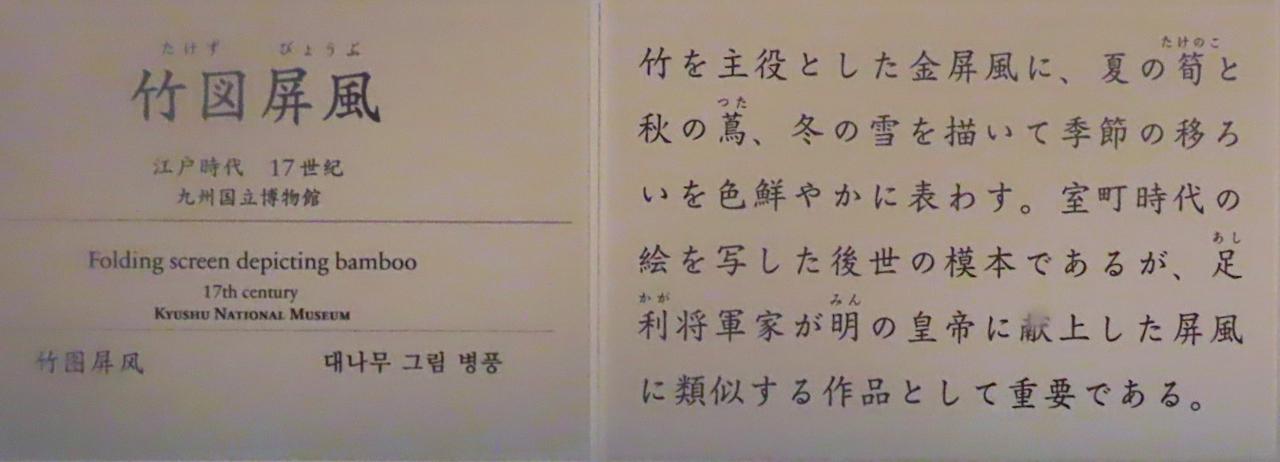 たけず びょうぶ
竹図屏風
江戸時代 17世紀
九州国立博物館
Folding screen depicting bamboo
17th century
KYUSHU NATIONAL MUSEUM
竹图屏风 대나무 그림 병풍
たけのこ
竹を主役とした金屏風に、夏の筍と
つた
秋の蔦、冬の雪を描いて季節の移ろ
いを色鮮やかに表わす。室町時代の
あし
絵を写した後世の模本であるが、足
かが みん
利将軍家が明の皇帝に献上した屏風
に類似する作品として重要である。